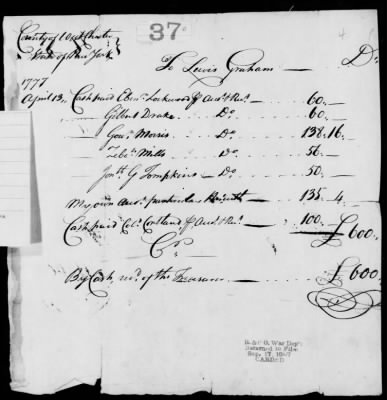 County of West Chester
State of New York
37
To Lewis Graham Dr
1777
April 13, Cash paid Eben. Lockwood ⅌ Acct & Rect 60
Gilbert Drake Do 60
Gouv. Morris Do 138.16
Zeb. Mills Do 56
Jonth. G Tompkins Do 50
My own Acct particulars herewith 135.4
Cash paid Colo. Cortland ⅌ Acct & Rect 100
£600
Cr
By Cash recd of the Treasurer £600
R. & P. O. War Dept
Returned to File
Sep. 27 1907
CARDED